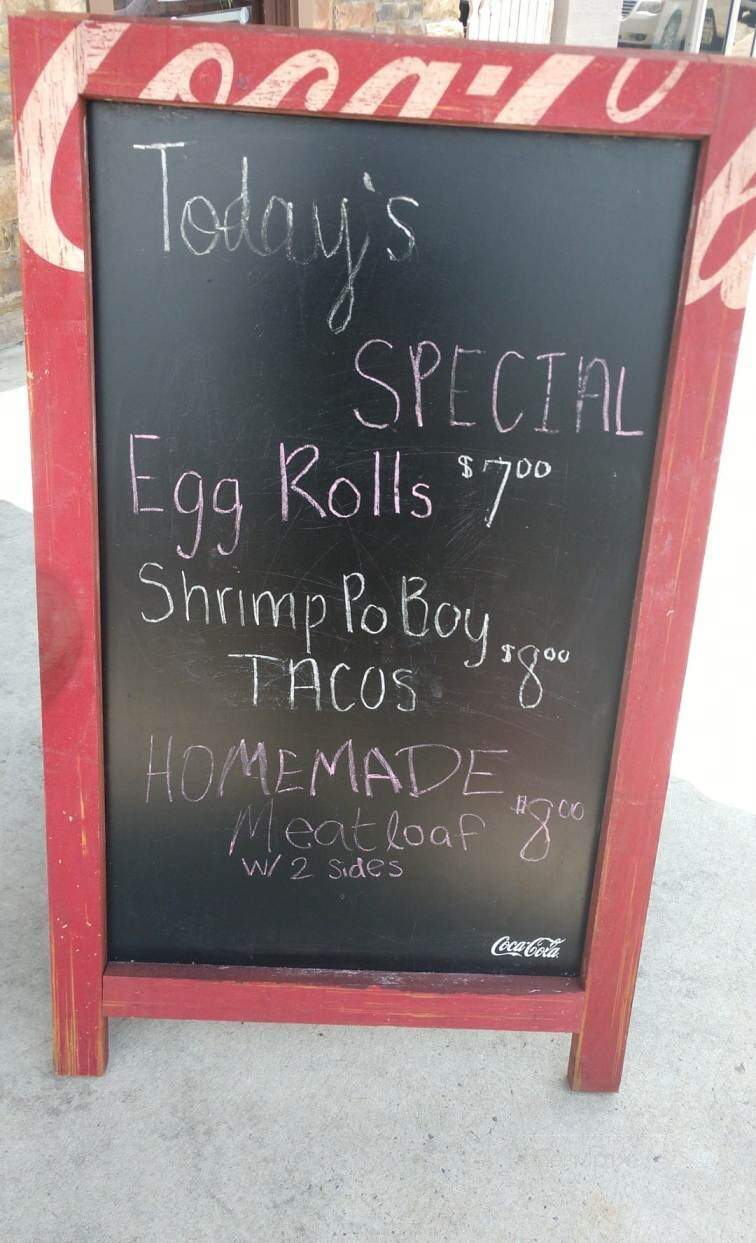 Coca-Co
Today's
SPECIAL
Egg Rolls $7.00
Shrimp Po Boy
TACOS $8.00
HOMEMADE
Meatloaf $8.00
W/ 2 sides
Coca-Cola